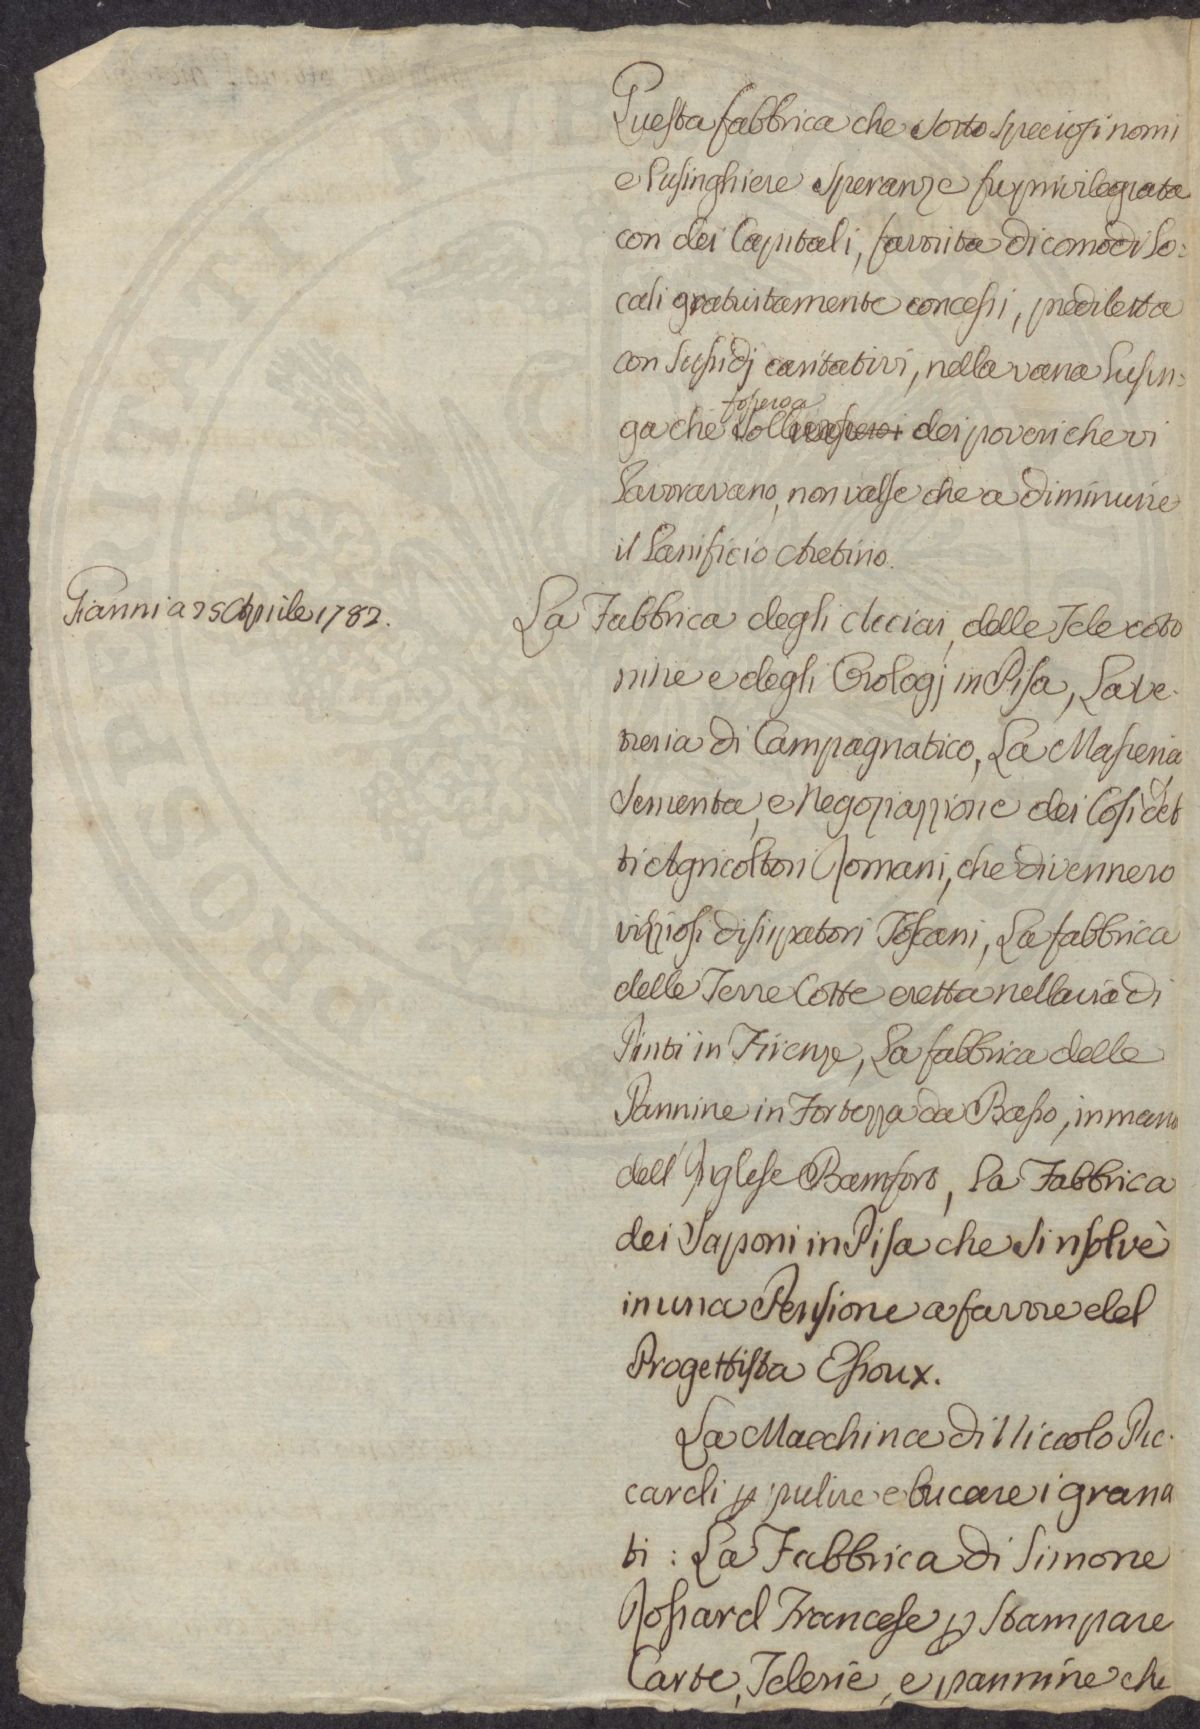 Questa fabbrica che sotto speciosi nomi
e lusinghiere speranze fu privilegiata
con dei Capitali, favorita di comodi lo=
cali gratuitamente concessi, prediletta
con sussidj caritativi, nella vana lusin=
ga che fosse a sollievo dei poveri che vi
lavoravano, non valse che a diminuire
il Lanificio Aretino.
Gianni a 25 Aprile 1782.
La Fabbrica degli Acciai, delle Tele coto
nine e degli Orologj in Pisa, La ve-
treria di Campagnatico, La Masseria
sementa, e Negoziazzione dei Cosi det
ti Agricoltori Romani, che divennero
vizziosi dissipatori Toscani, La fabbrica
delle Terre Cotte eretta nella via di
Pinti in Firenze, La fabbrica delle
Pannine in Fortezza da Basso, in mano
dell' Inglese Bamfort, la Fabbrica
dei Saponi in Pisa che si risolvè
in una Pensione a favore del
Progettista Essoux.
La Macchina di Niccolo Pic-
cardi p pulire e bucare i grana
ti : La Fabbrica di Simone
Rossard Francese p stampare
Carte, Telerie, e pannine che